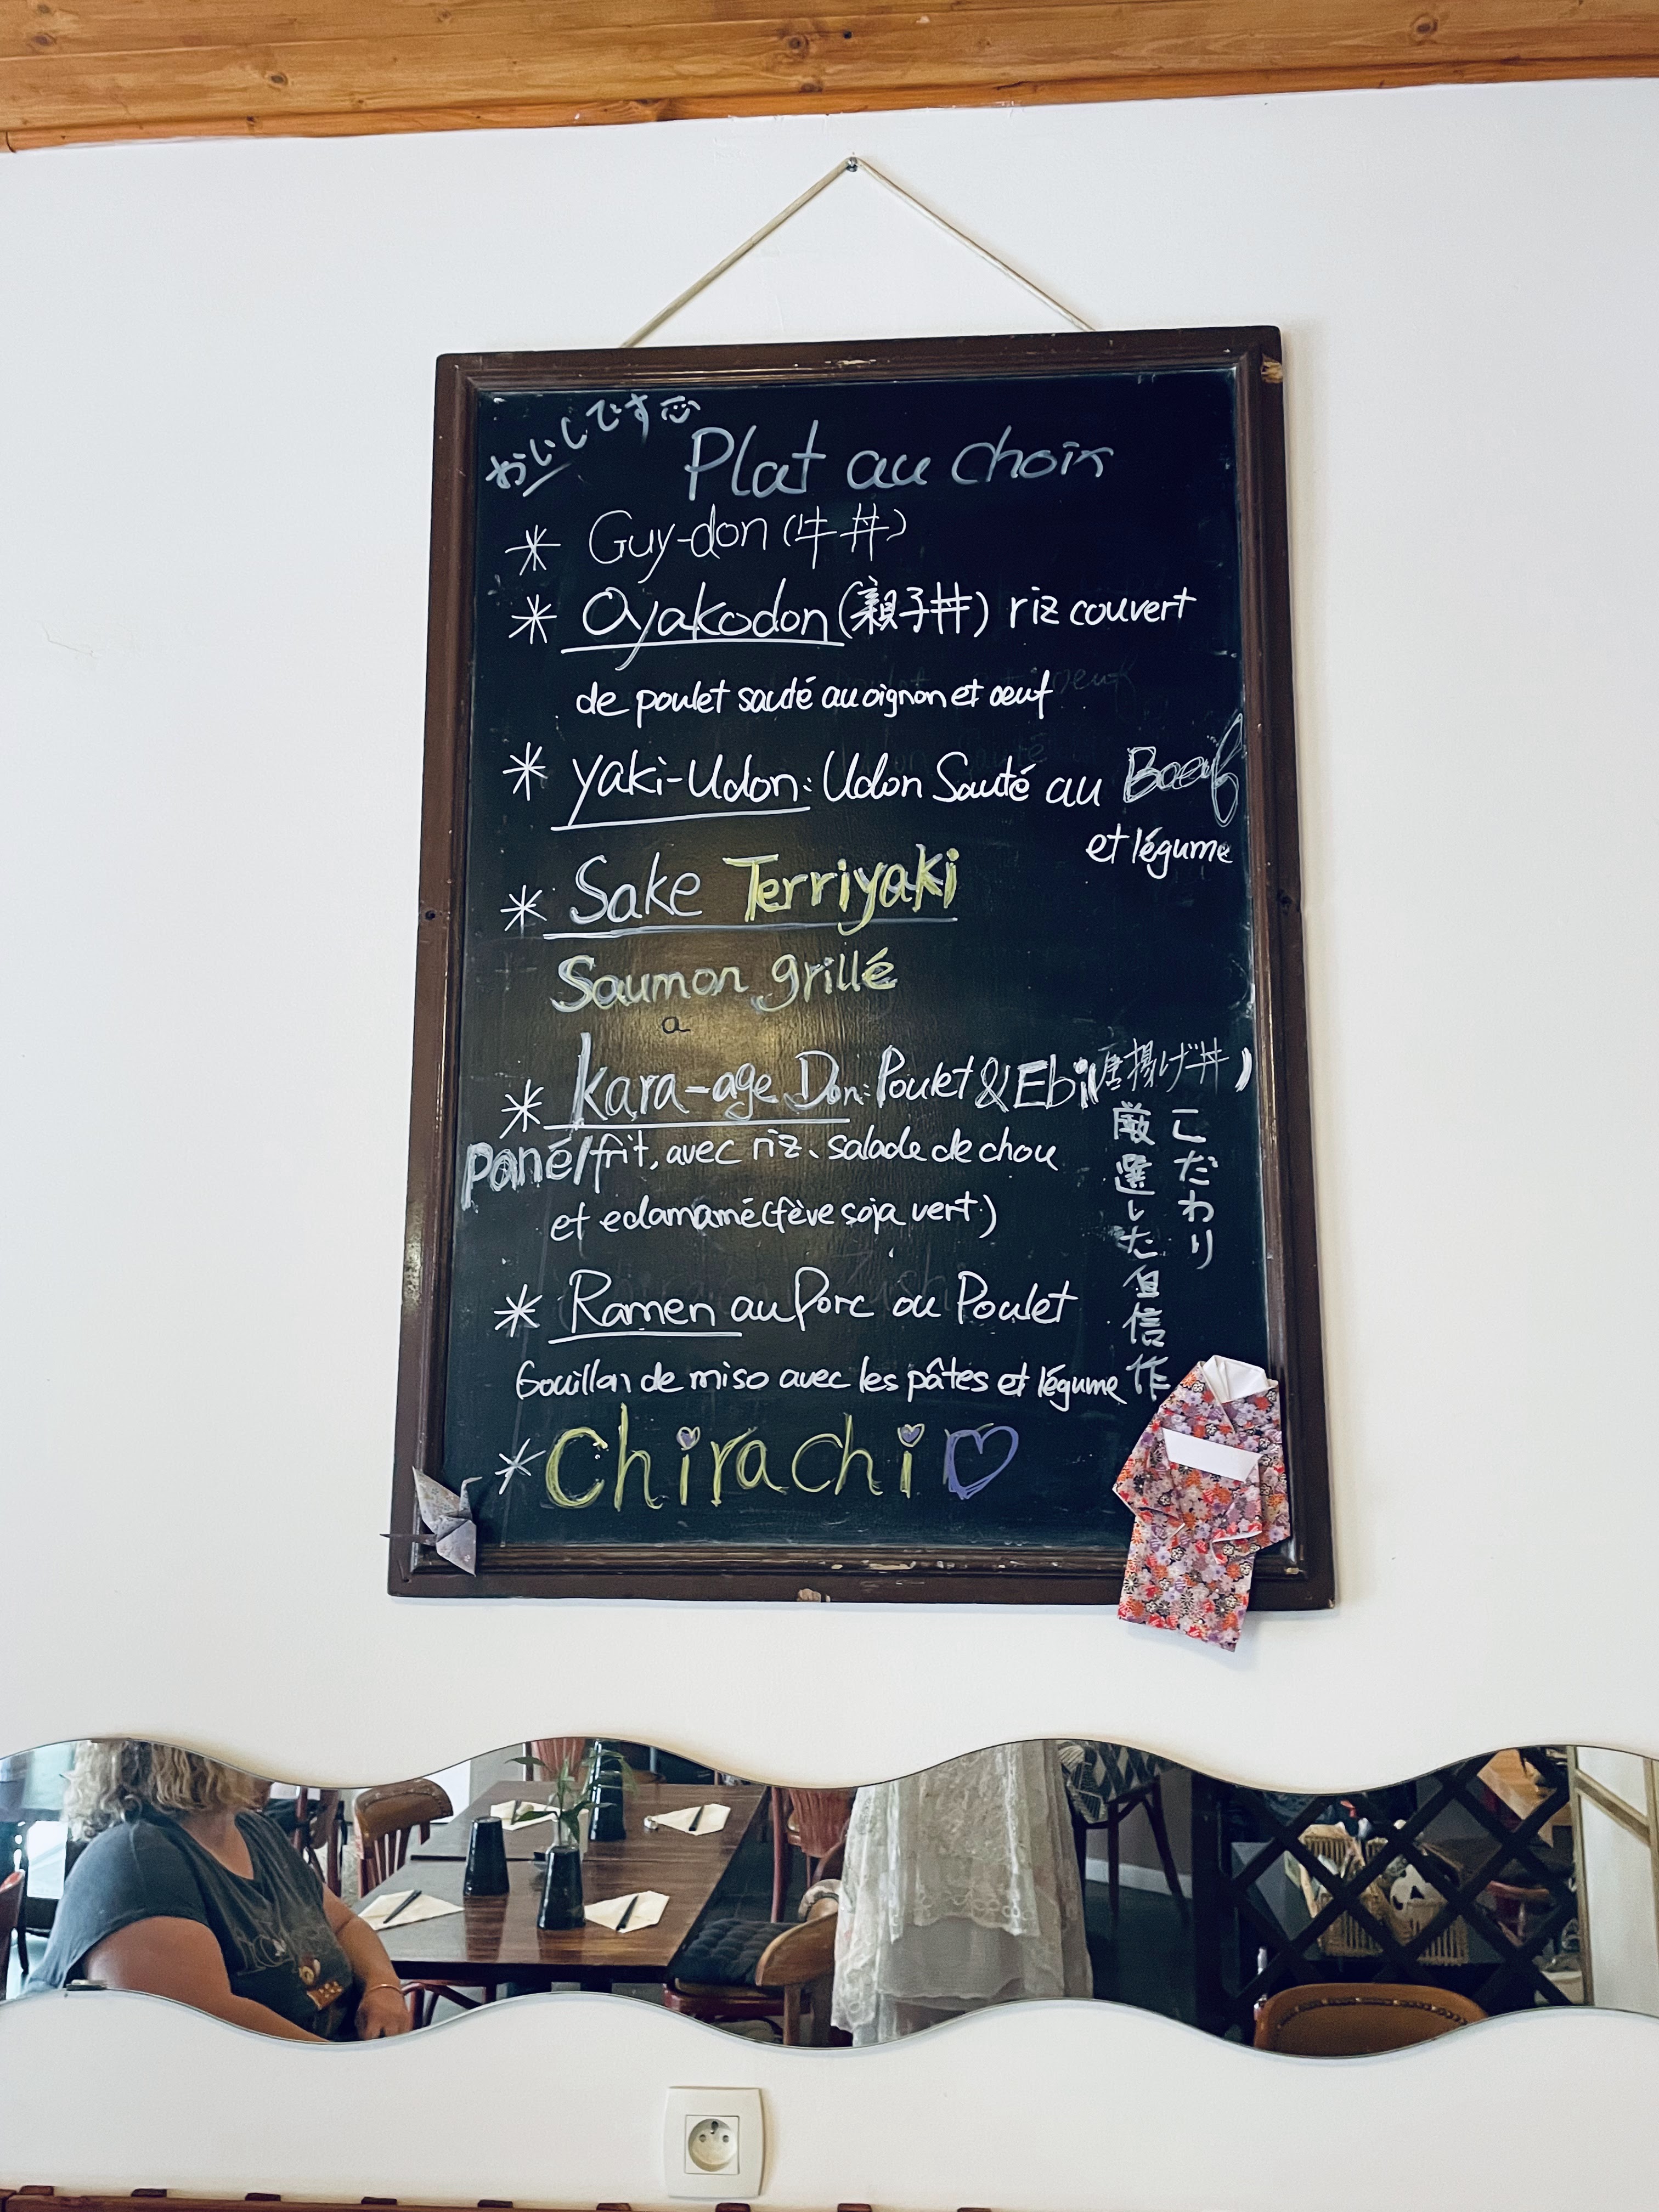 おいしです
Plat au choix
* Guy-don (牛丼)
* Oyakodon (親子丼) riz couvert
de poulet sauté au oignon et oeuf
* Yaki-Udon: Udon Sauté au Boeuf
et légume
* Sake Terriyaki
Saumon grillé
a
* Kara-age Don: Poulet & Ebi (唐揚げ丼)
Pané/frit, avec riz, salade de chou
et edamamé (fève soja vert)
* Ramen au Porc ou Poulet
Bouillon de miso avec les pâtes et légume
* Chirachi
こだわり
厳選した自信作